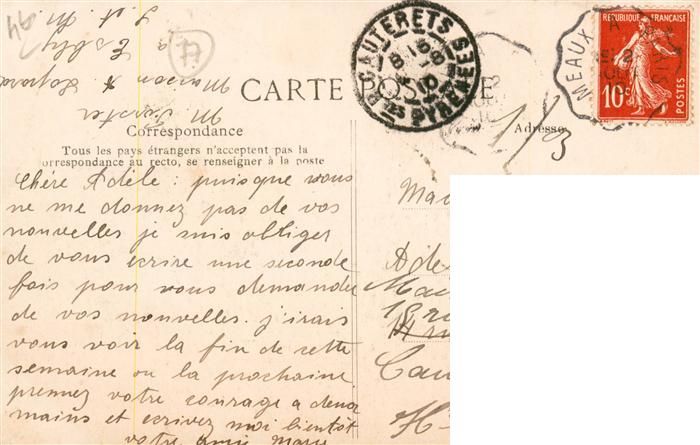 CARTE POSTALE
Correspondance
Tous les pays étrangers n'acceptent pas la
correspondance au recto, se renseigner à la poste
Adresse
RÉPUBLIQUE FRANÇAISE
10c
POSTES
MEAUX A
CAUTERETS
8 15
8
10
PYRÉNÉES
77
1/03
Chère Adèle : puisque vous
ne me donnez pas de vos
nouvelles je suis obliger
de vous ecrire une seconde
fois pour vous demander
de vos nouvelles. j'irais
vous voir la fin de cette
semaine ou la prochaine.
prennez votre courage a deux
mains et ecrivez moi bientôt
votre amie Marie
Ade
18 r
14 ru
Cau
H-